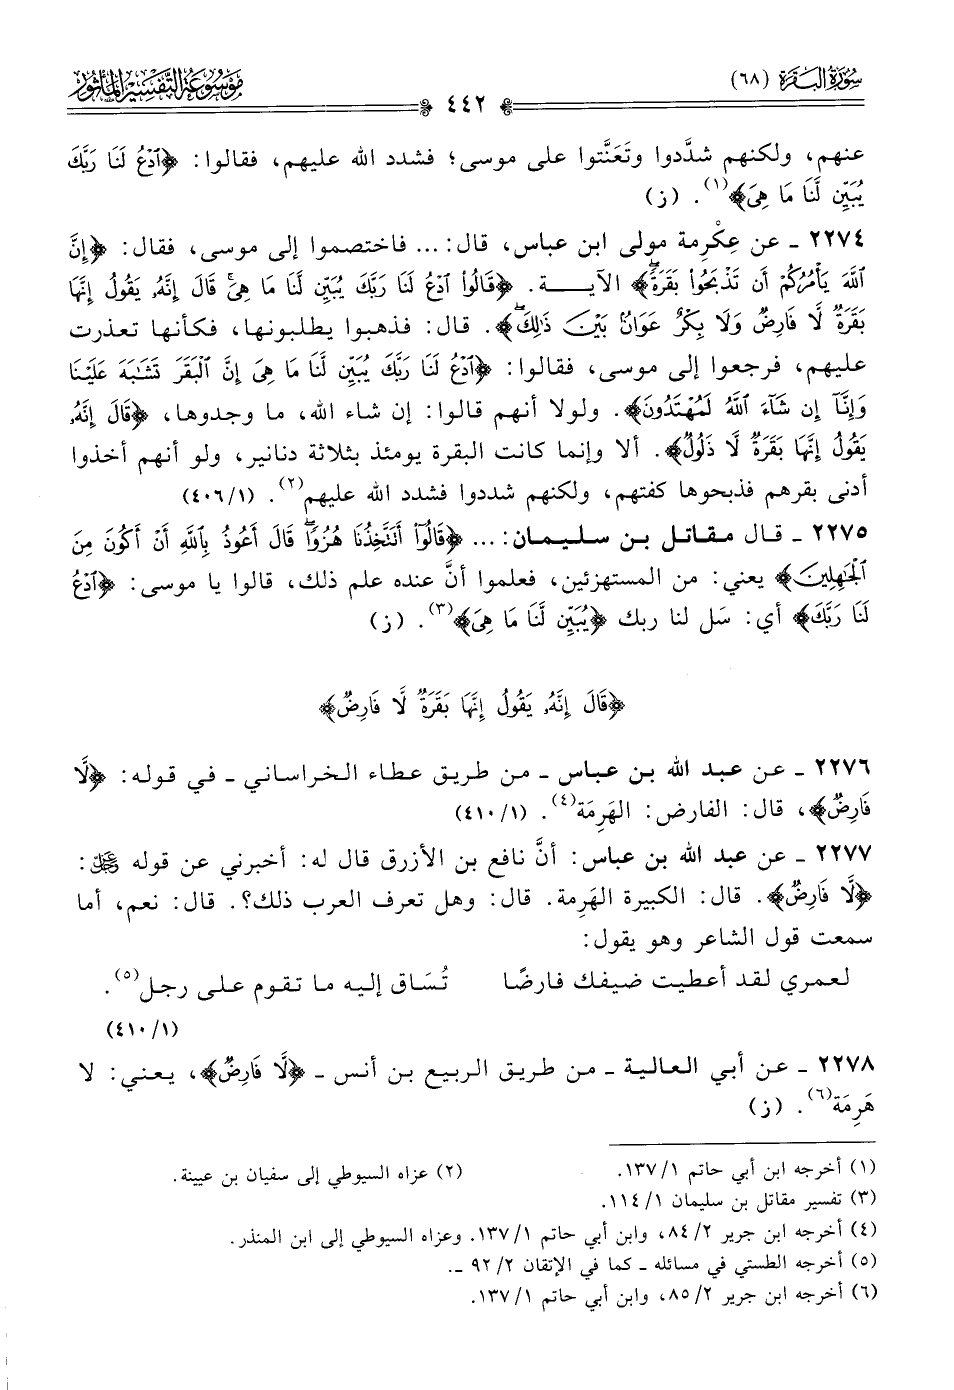 سُورَةُ البَقَرَة (٦٨)
٤٤٢
مَوْسُوعَةُ التَّفْسِيرِ المَأْثُور
عنهم، ولكنهم شدَّدوا وتَعَنَّتوا على موسى؛ فشدد الله عليهم، فقالوا: ﴿ٱدْعُ لَنَا رَبَّكَ
يُبَيِّن لَّنَا مَا هِىَ﴾(١). (ز)
٢٢٧٤ ـ عن عِكْرِمة مولى ابن عباس، قال: ... فاختصموا إلى موسى، فقال: ﴿إِنَّ
ٱللَّهَ يَأْمُرُكُمْ أَن تَذْبَحُوا۟ بَقَرَةً﴾ الآيـــة. ﴿قَالُوا۟ ٱدْعُ لَنَا رَبَّكَ يُبَيِّن لَّنَا مَا هِىَۚ قَالَ إِنَّهُۥ يَقُولُ إِنَّهَا
بَقَرَةٌ لَّا فَارِضٌ وَلَا بِكْرٌ عَوَانٌۢ بَيْنَ ذَٰلِكَۖ﴾. قال: فذهبوا يطلبونها، فكأنها تعذرت
عليهم، فرجعوا إلى موسى، فقالوا: ﴿ٱدْعُ لَنَا رَبَّكَ يُبَيِّن لَّنَا مَا هِىَ إِنَّ ٱلْبَقَرَ تَشَٰبَهَ عَلَيْنَا
وَإِنَّآ إِن شَآءَ ٱللَّهُ لَمُهْتَدُونَ﴾. ولولا أنهم قالوا: إن شاء الله، ما وجدوها، ﴿قَالَ إِنَّهُۥ
يَقُولُ إِنَّهَا بَقَرَةٌ لَّا ذَلُولٌ﴾. ألا وإنما كانت البقرة يومئذ بثلاثة دنانير، ولو أنهم أخذوا
أدنى بقرهم فذبحوها كفتهم، ولكنهم شددوا فشدد الله عليهم(٢). (٤٠٦/١)
٢٢٧٥ ـ قال مقاتل بن سليمان: ... ﴿قَالُوٓا۟ أَتَتَّخِذُنَا هُزُوًاۖ قَالَ أَعُوذُ بِٱللَّهِ أَنْ أَكُونَ مِنَ
ٱلْجَٰهِلِينَ﴾ يعني: من المستهزئين، فعلموا أنَّ عنده علم ذلك، قالوا يا موسى: ﴿ٱدْعُ
لَنَا رَبَّكَ﴾ أي: سَل لنا ربك ﴿يُبَيِّن لَّنَا مَا هِىَ﴾(٣). (ز)
﴿قَالَ إِنَّهُۥ يَقُولُ إِنَّهَا بَقَرَةٌ لَّا فَارِضٌ﴾
٢٢٧٦ ـ عن عبد الله بن عباس ـ من طريق عطاء الخراساني ـ في قوله: ﴿لَّا
فَارِضٌ﴾، قال: الفارض: الهَرِمَة(٤). (٤١٠/١)
٢٢٧٧ ـ عن عبد الله بن عباس: أنَّ نافع بن الأزرق قال له: أخبرني عن قوله ﷿:
﴿لَّا فَارِضٌ﴾. قال: الكبيرة الهَرِمة. قال: وهل تعرف العرب ذلك؟. قال: نعم، أما
سمعت قول الشاعر وهو يقول:
لعمري لقد أعطيت ضيفك فارضًا تُسَاق إليه ما تقوم على رجل(٥).
(٤١٠/١)
٢٢٧٨ ـ عن أبي العالية ـ من طريق الربيع بن أنس ـ ﴿لَّا فَارِضٌ﴾، يعني: لا
هَرِمَة(٦). (ز)
(١) أخرجه ابن أبي حاتم ١٣٧/١. (٢) عزاه السيوطي إلى سفيان بن عيينة.
(٣) تفسير مقاتل بن سليمان ١١٤/١.
(٤) أخرجه ابن جرير ٨٤/٢، وابن أبي حاتم ١٣٧/١. وعزاه السيوطي إلى ابن المنذر.
(٥) أخرجه الطستي في مسائله ـ كما في الإتقان ٩٢/٢ ـ.
(٦) أخرجه ابن جرير ٨٥/٢، وابن أبي حاتم ١٣٧/١.